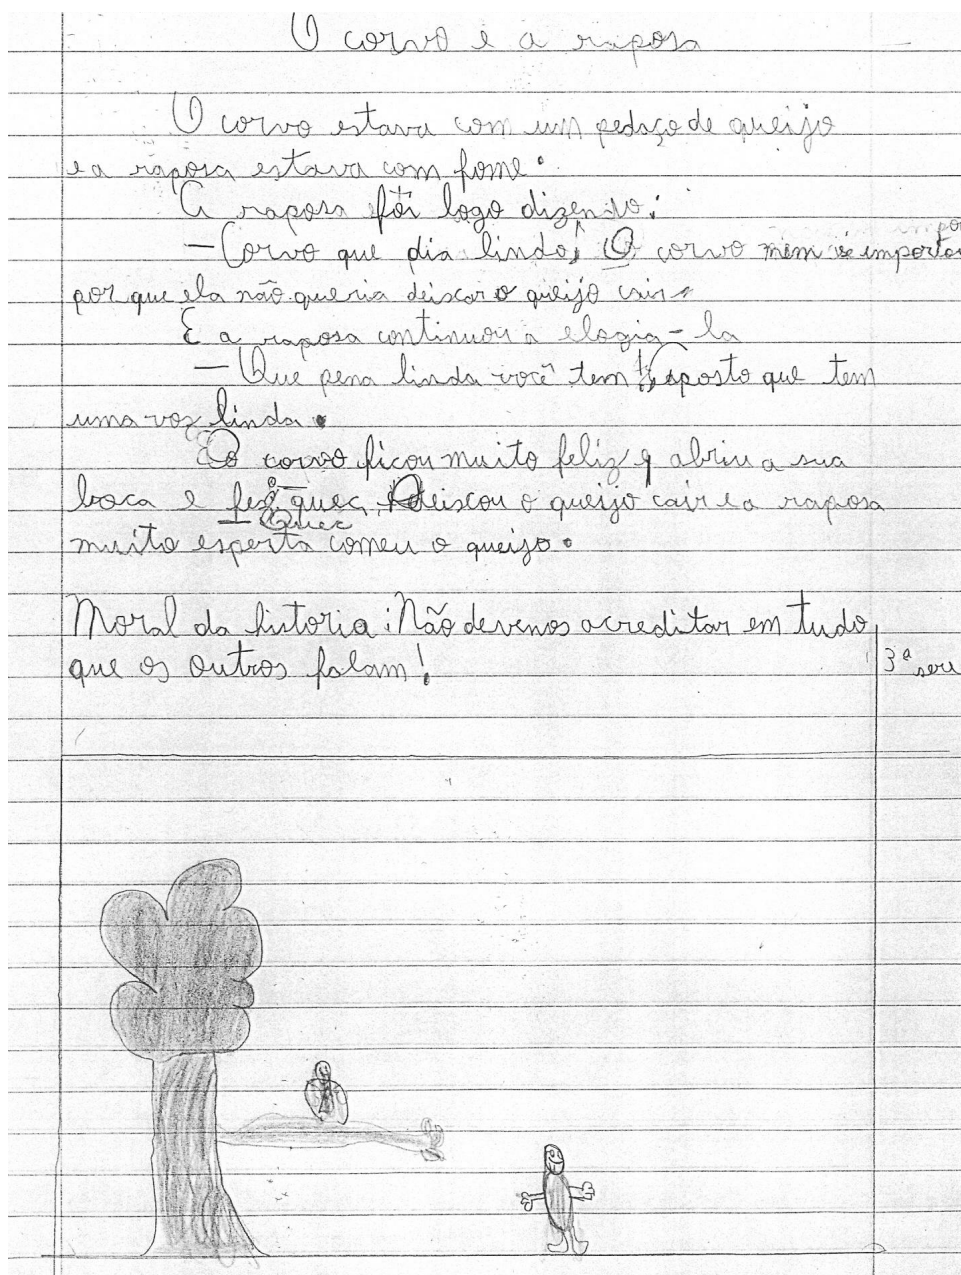 O corvo e a raposa
O corvo estava com um pedaço de queijo
e a raposa estava com fome.
A raposa foi logo dizendo:
— Corvo que dia lindo! O corvo nem se importou
por que ela não queria deiscar o queijo cair.
E a raposa continuou a elogia-la
— Que pena linda você tem! aposto que tem
uma voz linda.
E o corvo ficou muito feliz e abriu a sua
boca e fez: quec. Deiscou o queijo cair e a raposa
— Quec
muito esperta comeu o queijo.
Moral da historia: Não devenos acreditar em tudo
que os outros falam!
3ª seri